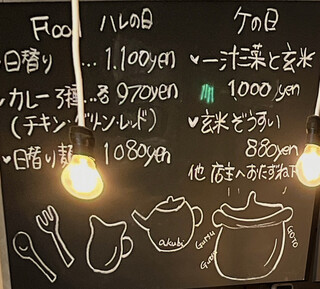 Food ハレの日
日替り...1.100yen
カレー3種...各970yen
(チキン・グリーン・レッド)
日替り麺 1080yen
ケの日
一汁三菜と玄米
1,000yen
玄米ぞうすい
880yen
他 店主へおたずね下
akubi
Gutsu
GOTO